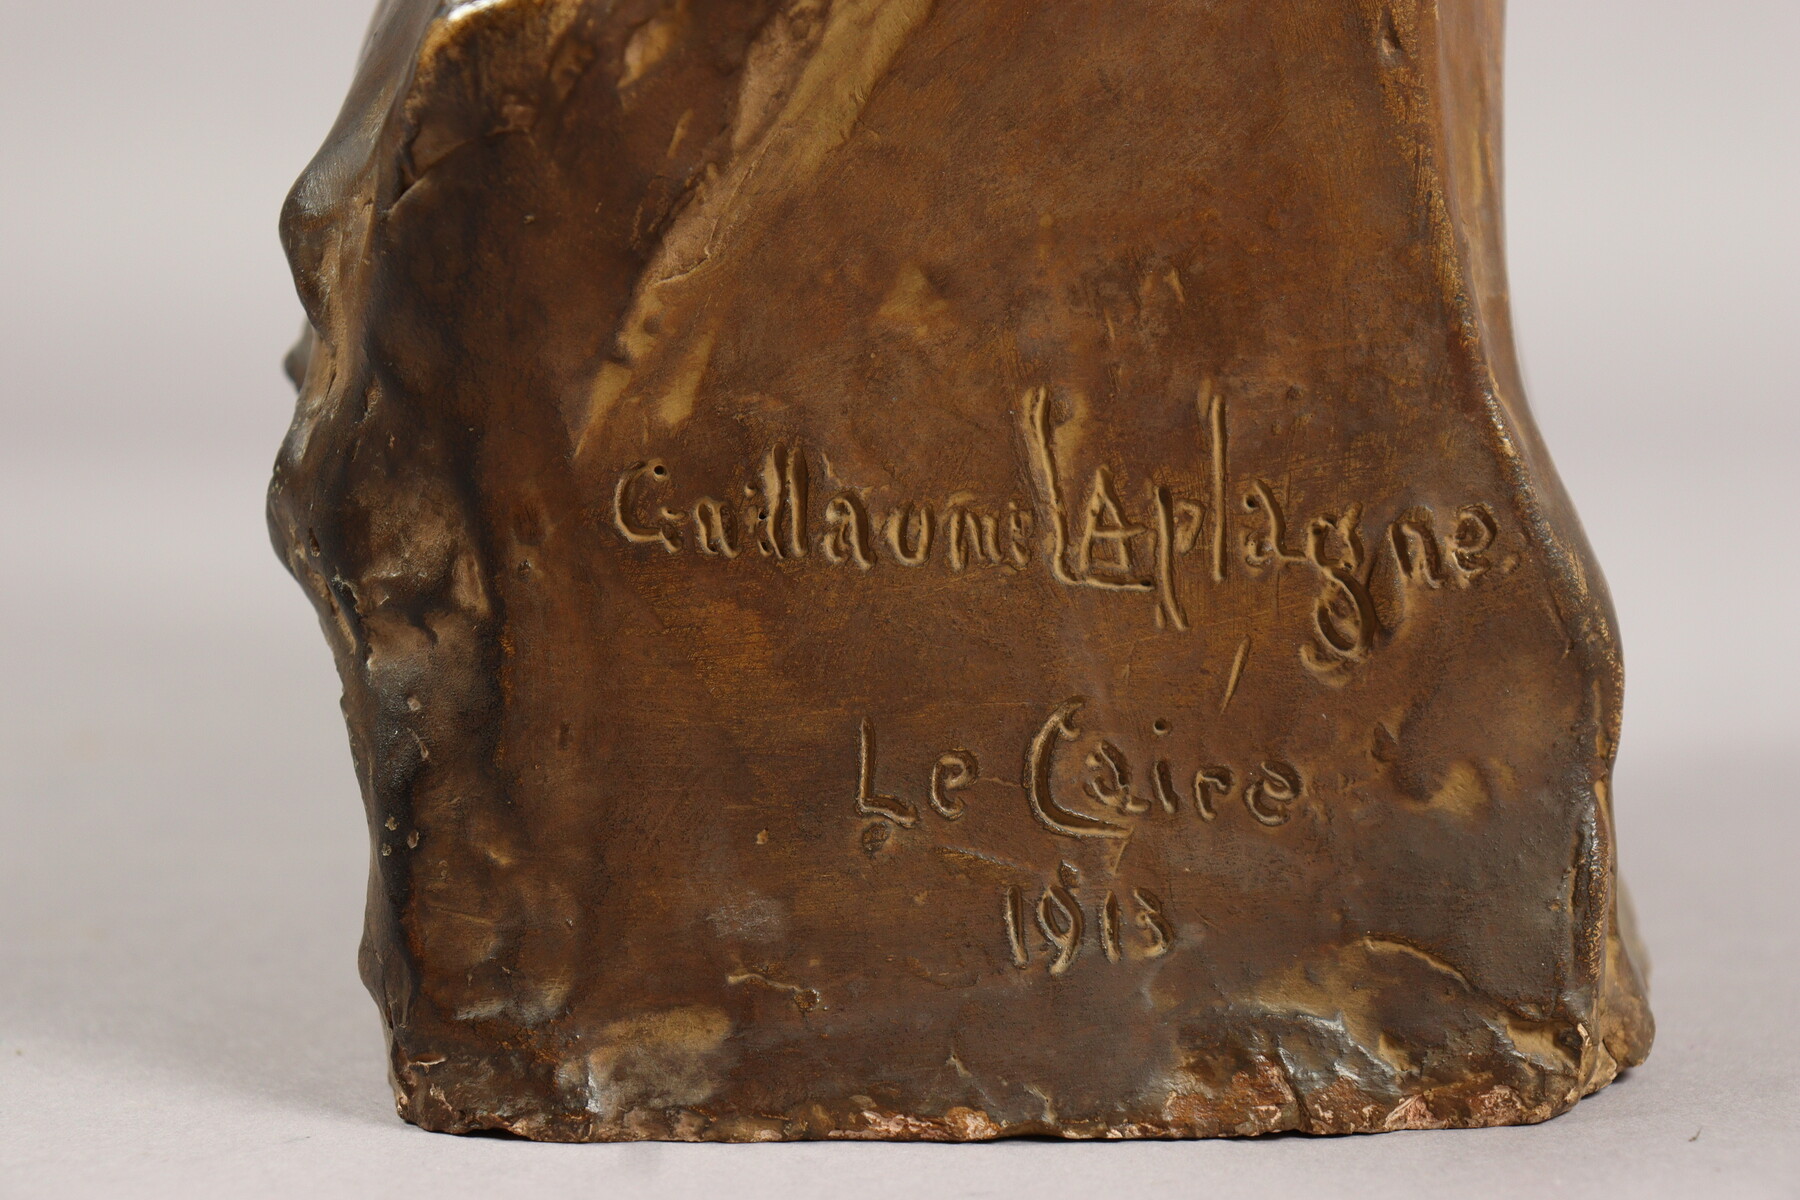 Guillaume Laplagne
Le Caire
1913